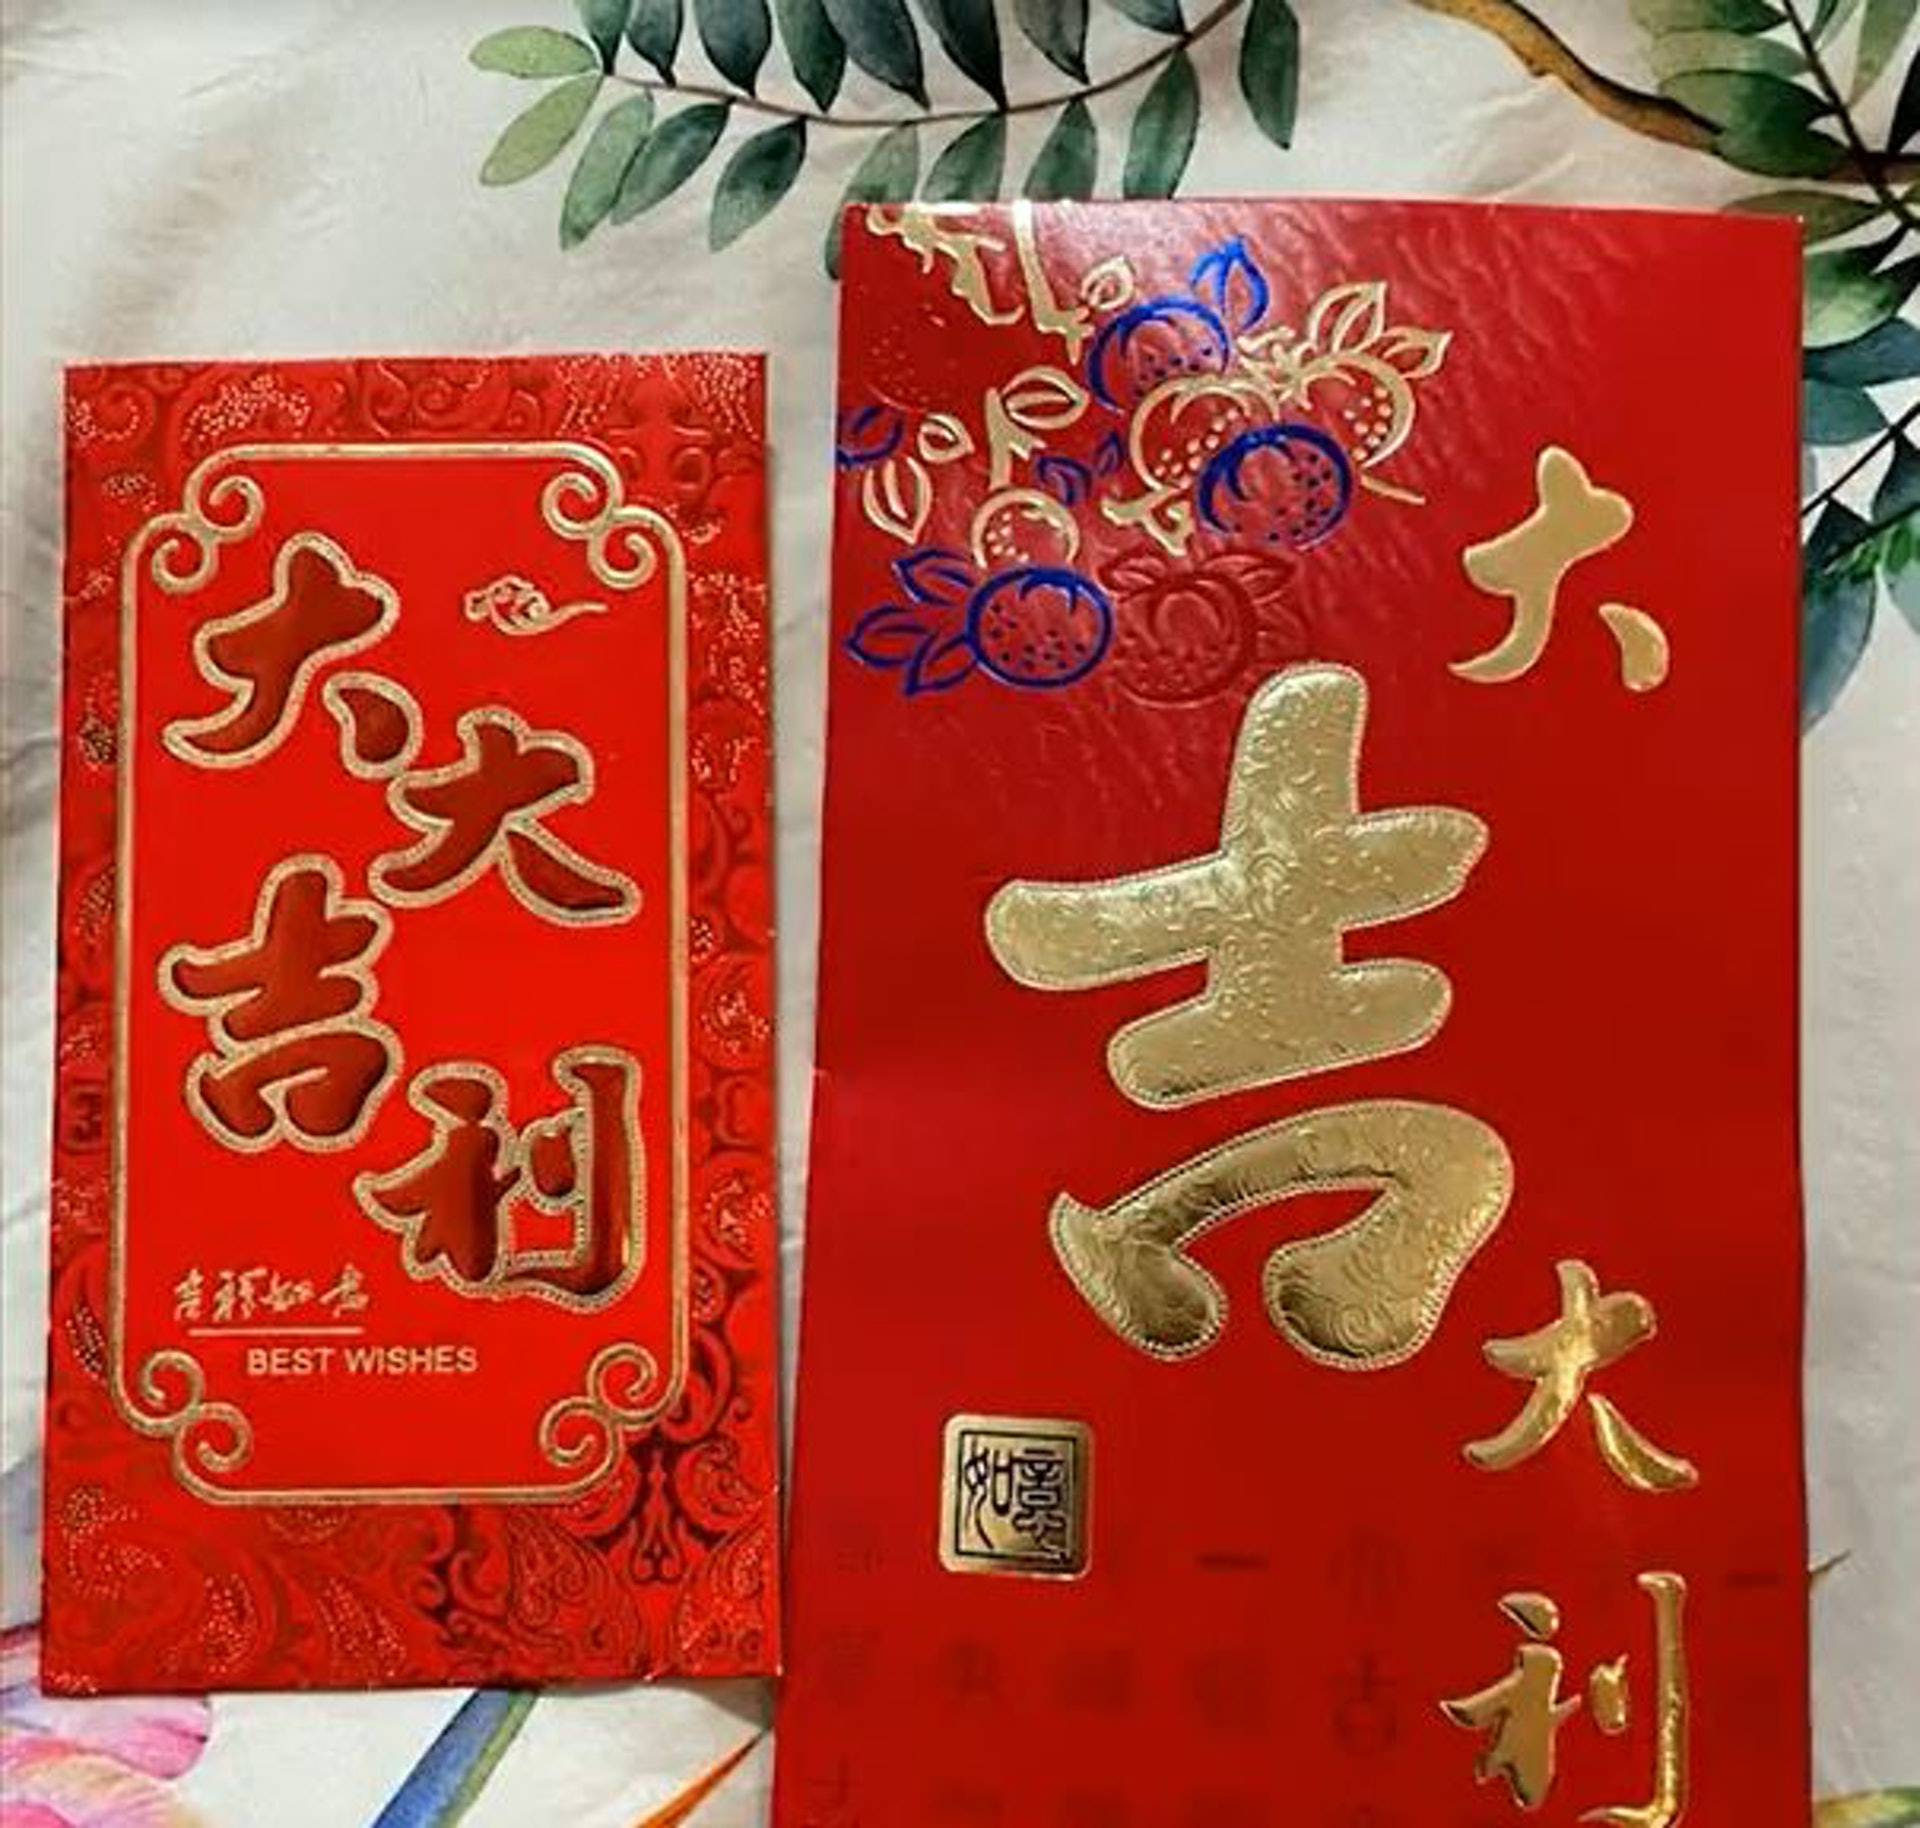 大
大
吉
利
吉祥如意
BEST WISHES
大
吉
大
利
如意